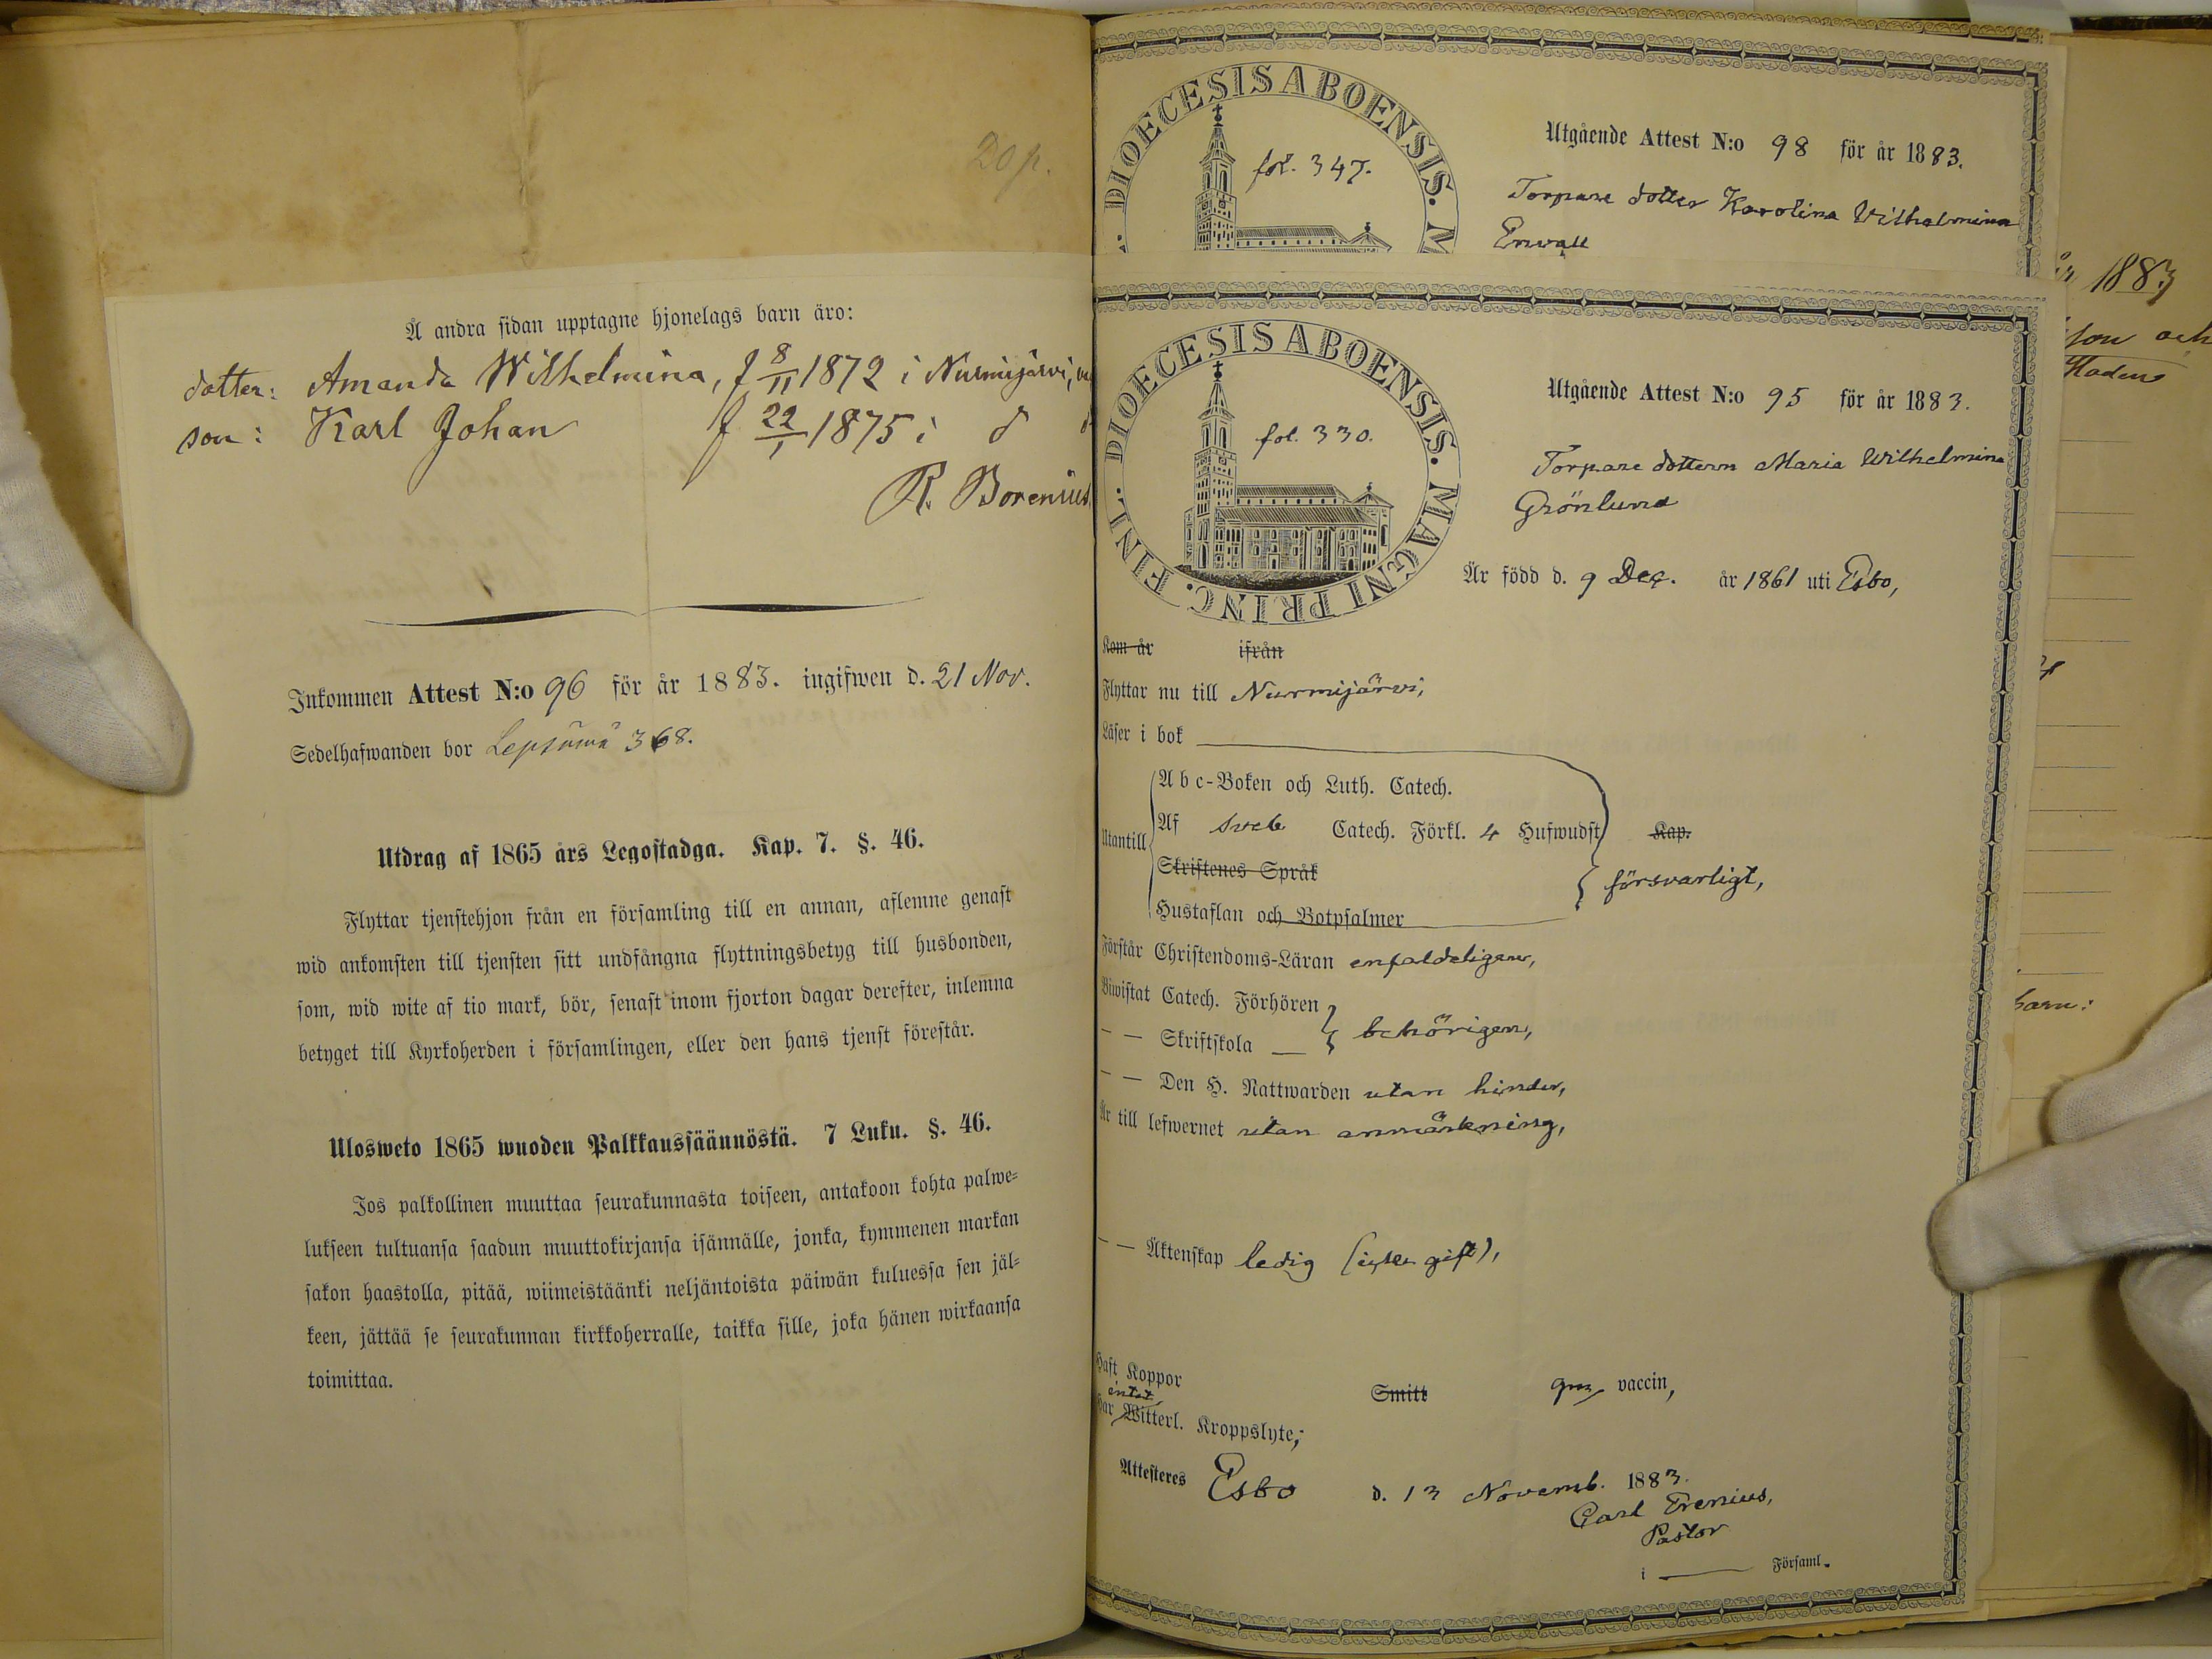 20 p.
Å andra sidan upptagne hjonelags barn äro:
dotter: Amanda Wilhelmina, f 8/11 1872 i Nurmijärvi,
son: Karl Johan f 22/1 1875 i d
R. Borenius
Inkommen Attest N:o 96 för år 1883. ingifwen d. 21 Nov.
Sedelhafwanden bor Lepsämä 368.
Utdrag af 1865 års Legostadga. Kap. 7. §. 46.
Flyttar tjenstehjon från en församling till en annan, aflemne genast
wid ankomsten till tjensten sitt undfångna flyttningsbetyg till husbonden,
som, wid wite af tio mark, bör, senast inom fjorton dagar derefter, inlemna
betyget till Kyrkoherden i församlingen, eller den hans tjenst förestår.
Ulosweto 1865 wuoden Palkkaussäännöstä. 7 Luku. §. 46.
Jos palkollinen muuttaa seurakunnasta toiseen, antakoon kohta palwe=
lukseen tultuansa saadun muuttokirjansa isännälle, jonka, kymmenen markan
sakon haastolla, pitää, wiimeistäänki neljäntoista päiwän kuluessa sen jäl=
keen, jättää se seurakunnan kirkkoherralle, taikka sille, joka hänen wirkaansa
toimittaa.
DIOECESIS ABOENSIS. M
fol. 347.
Utgående Attest N:o 98 för år 1883.
Torpare dotter Karolina Wilhelmina
Enwall
DIOECESIS ABOENSIS. MAGNI PRINC. FINL.
fol. 330.
Utgående Attest N:o 95 för år 1883.
Torpare dottern Maria Wilhelmina
Grönlund
Är född d. 9 Dec. år 1861 uti Esbo,
Kom år ifrån
Flyttar nu till Nurmijärvi,
Läser i bok
Utantill
Abc-Boken och Luth. Catech.
Af Sveb Catech. Förkl. 4 Hufwudst Kap.
Skriftenes Språk
försvarligt,
Hustaflan och Botpsalmer
Förstår Christendoms-Läran enfaldeligen,
Biwistat Catech. Förhören
behörigen,
— — Skriftskola
— — Den H. Nattwarden utan hinder,
Är till lefwernet utan anmärkning,
— — Äktenskap ledig (icke gift),
Haft Koppor Smitt gm vaccin,
intet
Har Witterl. Kroppslyte;
Attesteres Esbo d. 13 Novemb. 1883.
Carl Frenius,
Pastor
i Församl.
år 1883
son och
barn: